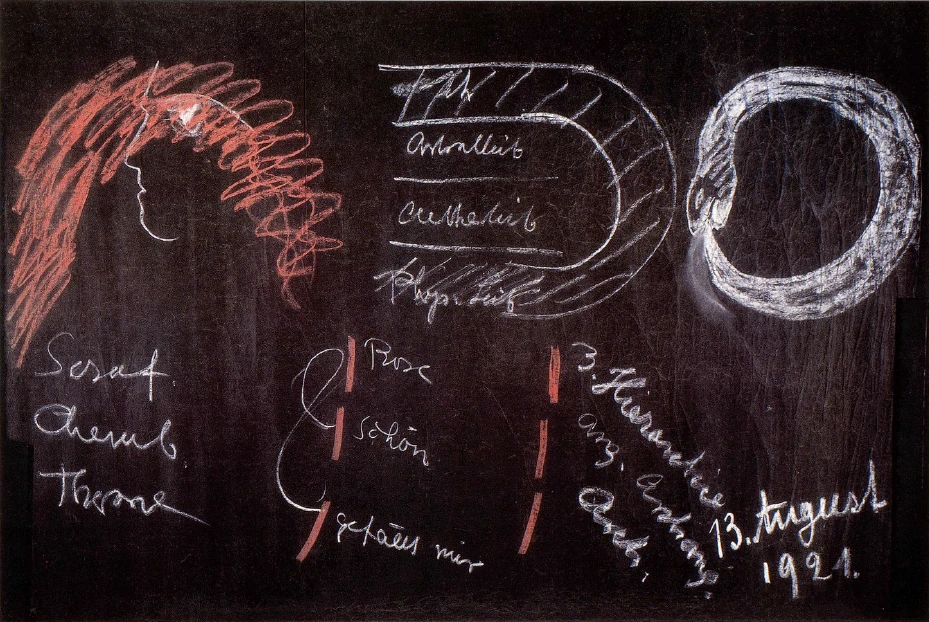 Ich
Astralleib
Aetherleib
Phys. Leib
Seraf.
Cherub.
Throne
Rose
schön
gefällt mir
3. Hierarchie
Ang. Archang.
Arch.
13. August
1921.